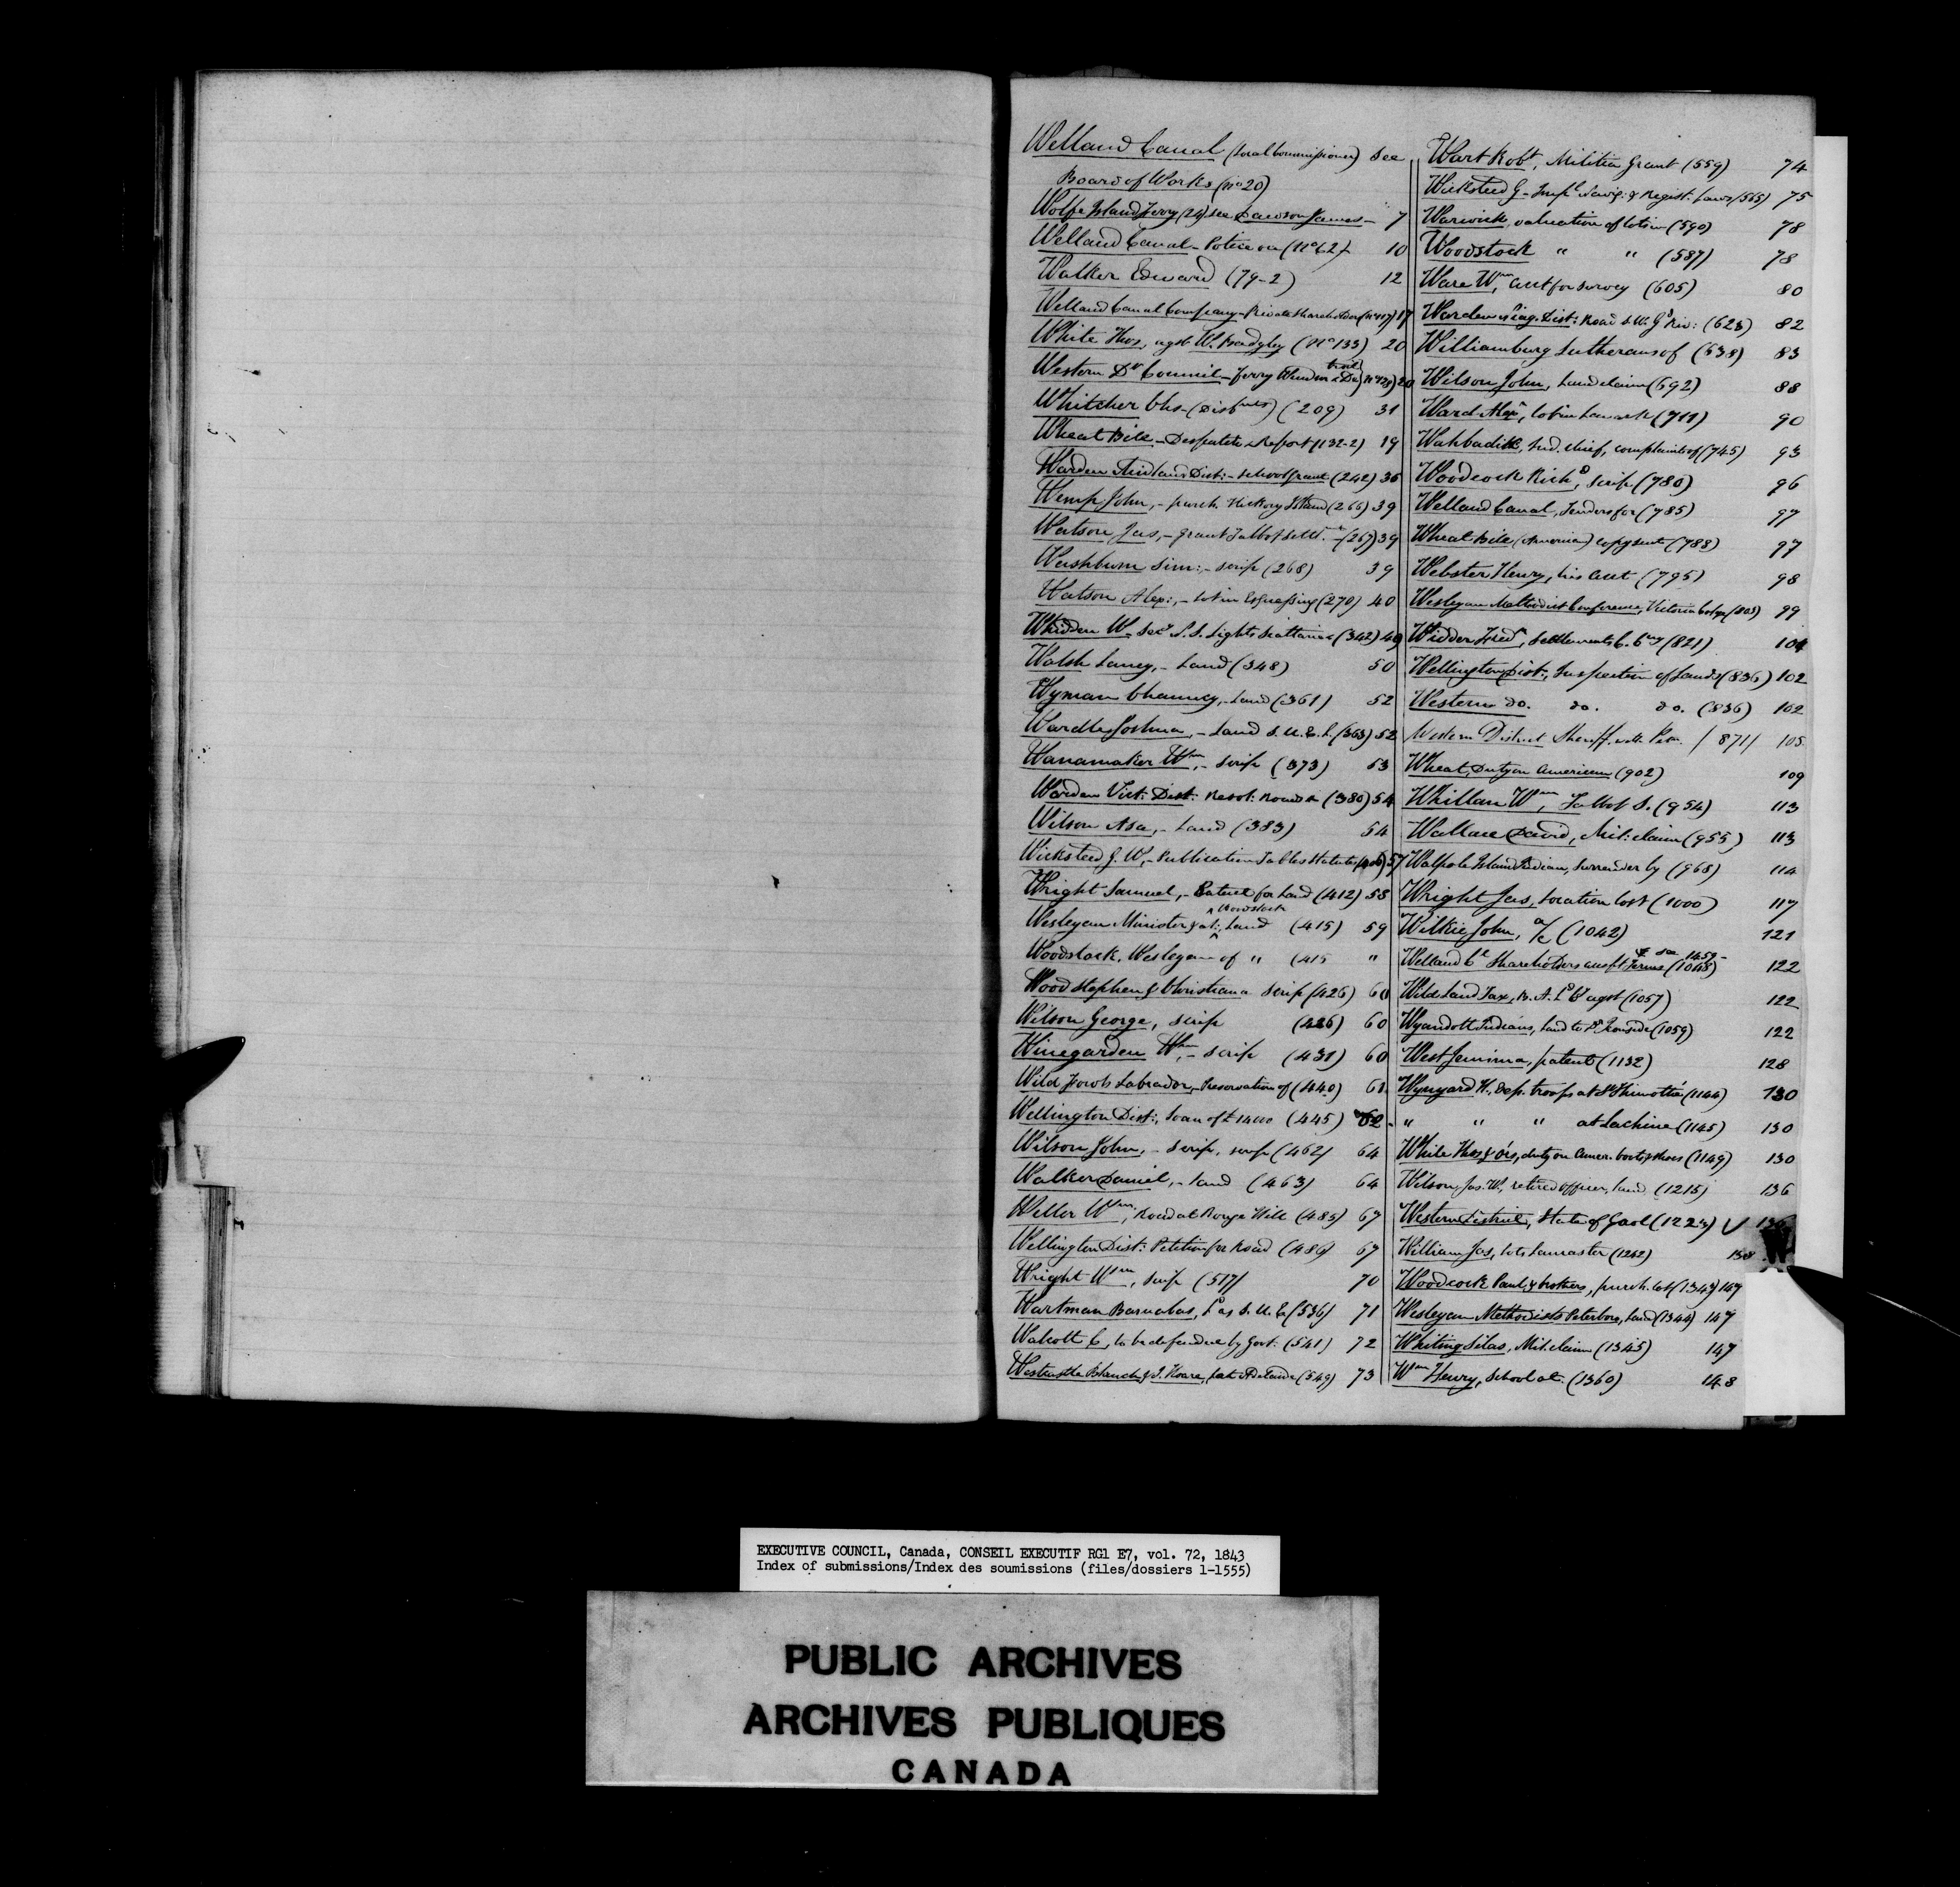 Welland Canal (Local Commissioner) See
Board of Works (no 20)
Wolfe Island Ferry (24) see Dawson James - 7
Welland Canal - Police on (No 62) 10
Walker Edward (79-2) 12
Welland Canal Company - Private Shareholders (No 117) 17
White Thos, agst W. Badgley (No 133) 20
Western Dt Council - Ferry Windsor & Detroit (No 128) 20
Whitcher Chs - (Disbmts) (209) 31
Wheat Bill - Despatch & Report (132-2) 19
Warden Midland Dist: - School grant (242) 36
Wemp John, - purch. Hickory Island (266) 39
Watson Jas, - grant Talbot Settt. - (267) 39
Washburn Sim:, - scrip (268) 39
Watson Alex:, - lot in Esquessing (270) 40
Whidden W - Secy (342) 49
Walsh Laney, - Land (348) 50
Wyman Chauncy, - Land (361) 52
Wardle Joshua, - Land S. U. E. L. (363) 52
Wanamaker Wm, - Scrip (373) 53
Warden Vict: Dist: Resol: Roads & (380) 54
Wilson Asa, - Land (383) 54
Wicksteed G. W, - Publication Tables Statutes (406) 57
Wright Samuel, - Patent for Land (412) 58
Wesleyan Minister &a at Woodstock, Land (415) 59
Woodstock, Wesleyan of " (415 "
Wood Stephen & Christiana Scrip (426) 60
Wilson George, scrip (426) 60
Winegarden Wm, - Scrip (431) 60
Wild Fowls Labrador, - Preservation of (440) 61
Wellington Dist:, Loan of £14000 (445) 62 -
Wilson John, - Scrip, (462) 64
Walker Daniel, - land (463) 64
Weller Wm, Road at Rouge Hill (485) 67
Wellington Dist: Petition for Road (486) 67
Wright Wm, Scrip (517) 70
Wartman Barnabas, Ld as S. U. E (536) 71
Walcott C, to be defended by Govt: (541) 72
Blanch & J. Hoare, lot Adelaide (549) 73
Wart Robt, Militia Grant (559) 74
Wicksteed G - Impl Navig: & Regist: Laws (565) 75
Warwick, valuation of lots in (590) 78
Woodstock " " (587) 78
Ware Wm, acct for survey (605) 80
Warden Niag. Dist: Road & W. Gd Riv: (628) 82
Williamburg Lutherans of (638) 83
Wilson John, Land claim (692) 88
Ward Alexr, lot in Lanark (711) 90
Wahbadick, Ind. chief, complaints of (745) 93
Woodcock Richd, Scrip (780) 96
Welland Canal, Tenders for (785) 97
Wheat Bill (American) copy sent (788) 97
Webster Henry, his acct (795) 98
Wesleyan Methodist Conference, Victoria College (803) 99
Widder Fredk, settlements C. Cony (821) 101
Wellington Dist:, Inspection of Lands (836) 102
Western do. do. do. (836) 102
Western District Sheriff, (871) 105
Wheat, Duty on American (902) 109
Whillan Wm, Talbot S. (954) 113
Wallace David, Mil: claim (955) 113
Walpole Island Indian, surrender by (968) 114
Wright Jas, location lost (1000) 117
Wilkie John, a/c (1042) 121
& see 1459 -
Welland Cl Shareholders accept Terms (1048) 122
Wild Land Tax, B. A. Ld Cy agst (1057) 122
Wyandott Indians, land to Ironside (1059) 122
West Jemima, patent (1132) 128
Wynyard H., exp. troops at St Thimothé (1144) 130
" " " at Lachine (1145) 130
White Thos & ors, duty on Amer. boots & shoes (1149) 130
Wilson, Jas. W., retired officer, land (1215) 136
Western District, State of Gaol (1223) 136
William Jas, lots Lancaster (1242) 138
Woodcock Paul & brothers, purch. lot (1343) 147
Wesleyan Methodists Peterboro, Land (1344) 147
Whiting Silas, Mil. claim (1345) 147
Wm Henry, School at (1360) 148
W
EXECUTIVE COUNCIL, Canada, CONSEIL EXECUTIF RG1 E7, vol. 72, 1843
Index of submissions/Index des soumissions (files/dossiers 1-1555)
PUBLIC ARCHIVES
ARCHIVES PUBLIQUES
CANADA